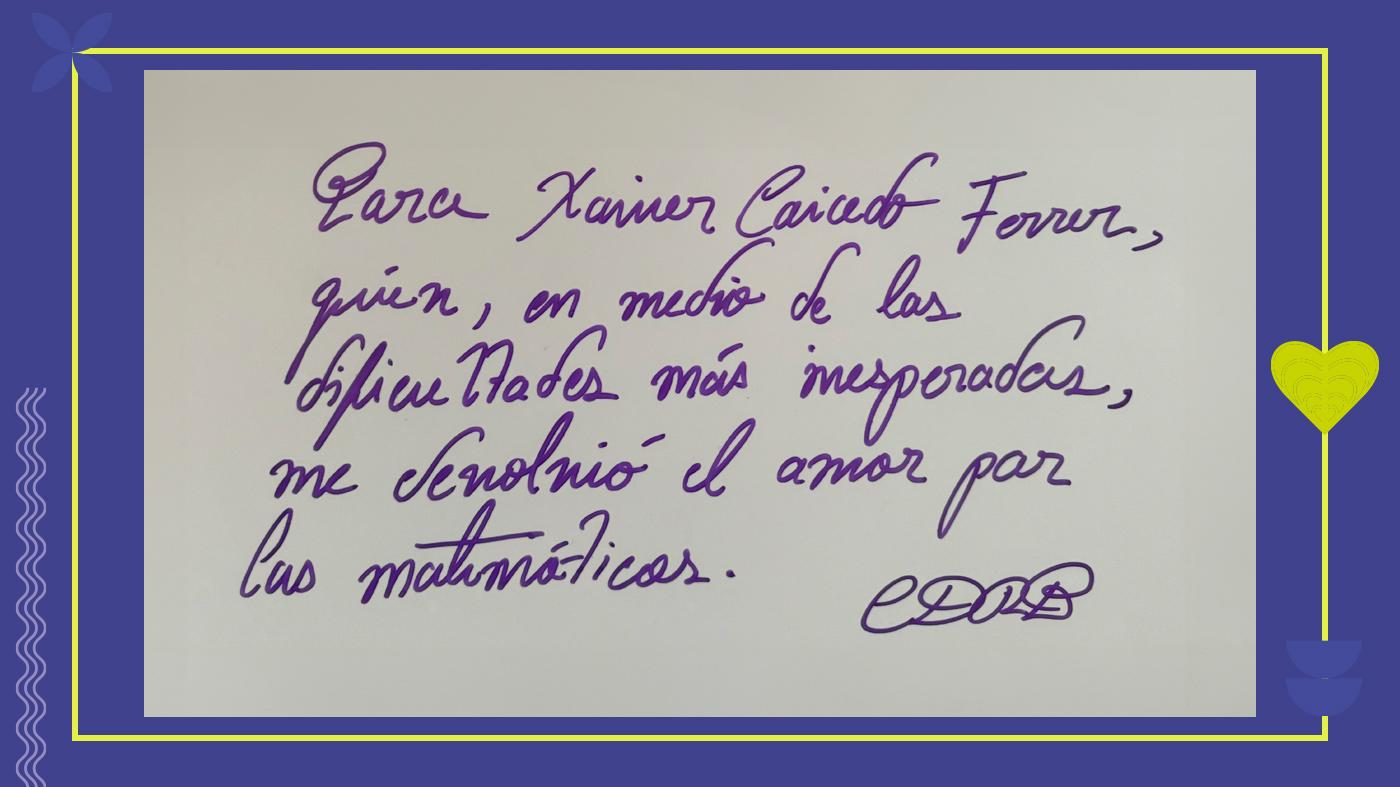 Para Xavier Caicedo Ferrer,
quien, en medio de las
dificultades más inesperadas,
me devolvió el amor por
las matemáticas.
CDRB